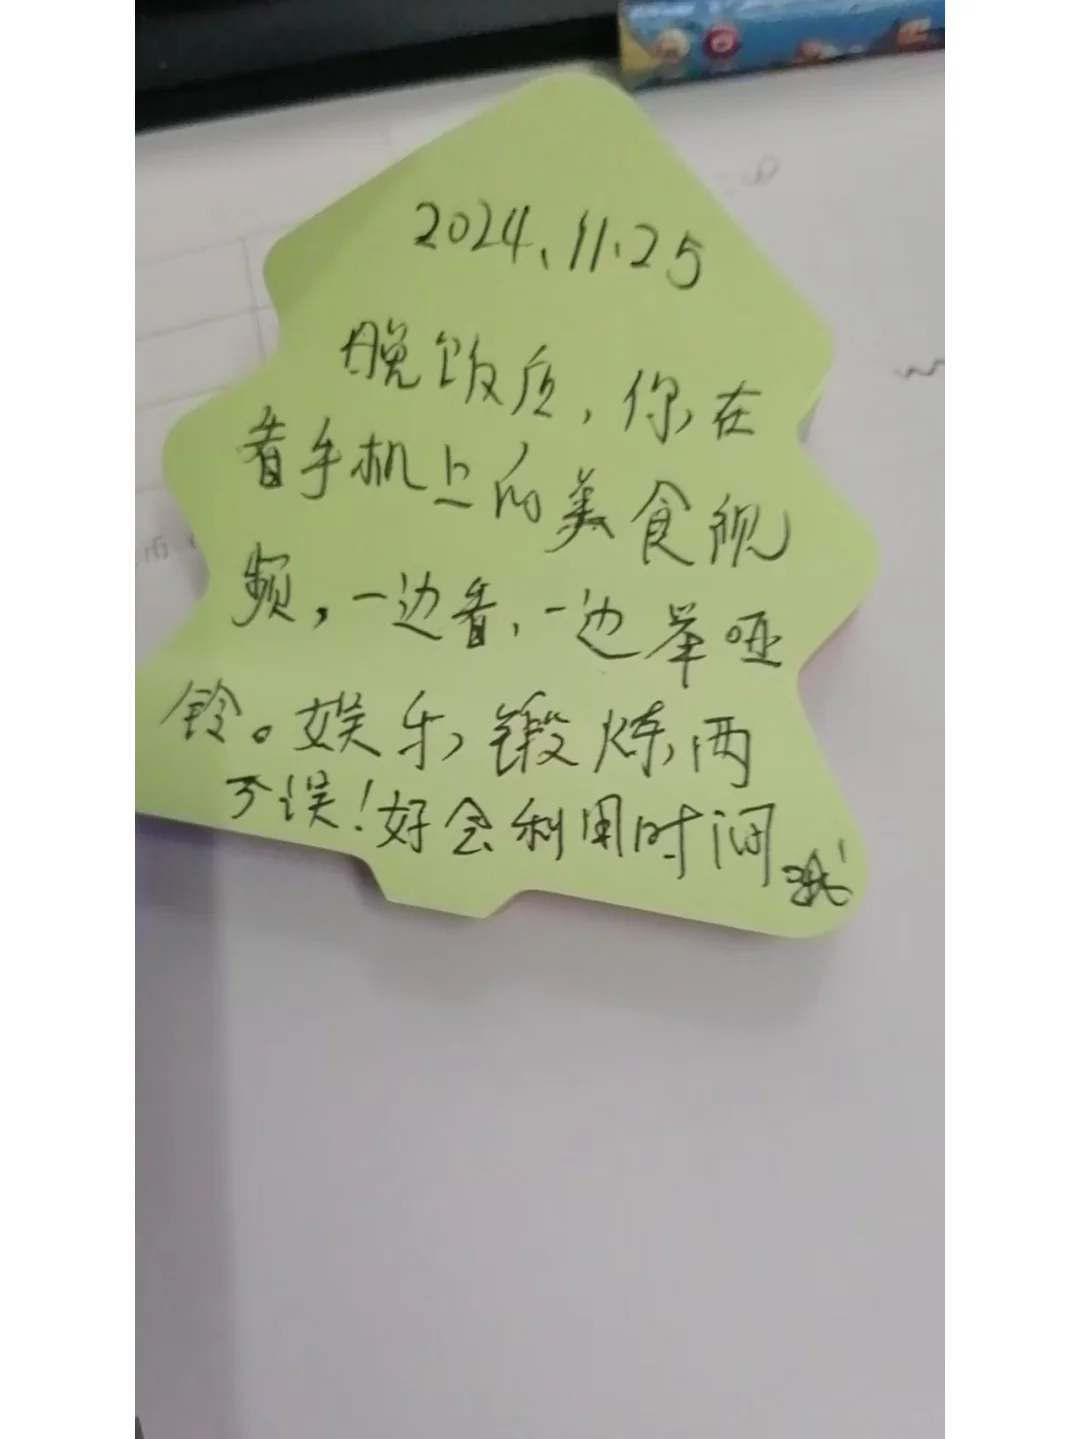 2024.11.25
晚饭后，你在
看手机上的美食视
频，一边看，一边举哑
铃。娱乐，锻炼两
不误！好会利用时间